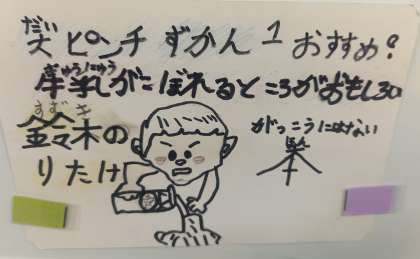 だい
大ピンチずかん1おすすめ!
ぎゅうにゅう
牛乳がこぼれるところがおもしろい
すずき
鈴木の
りたけ
がっこうにはない